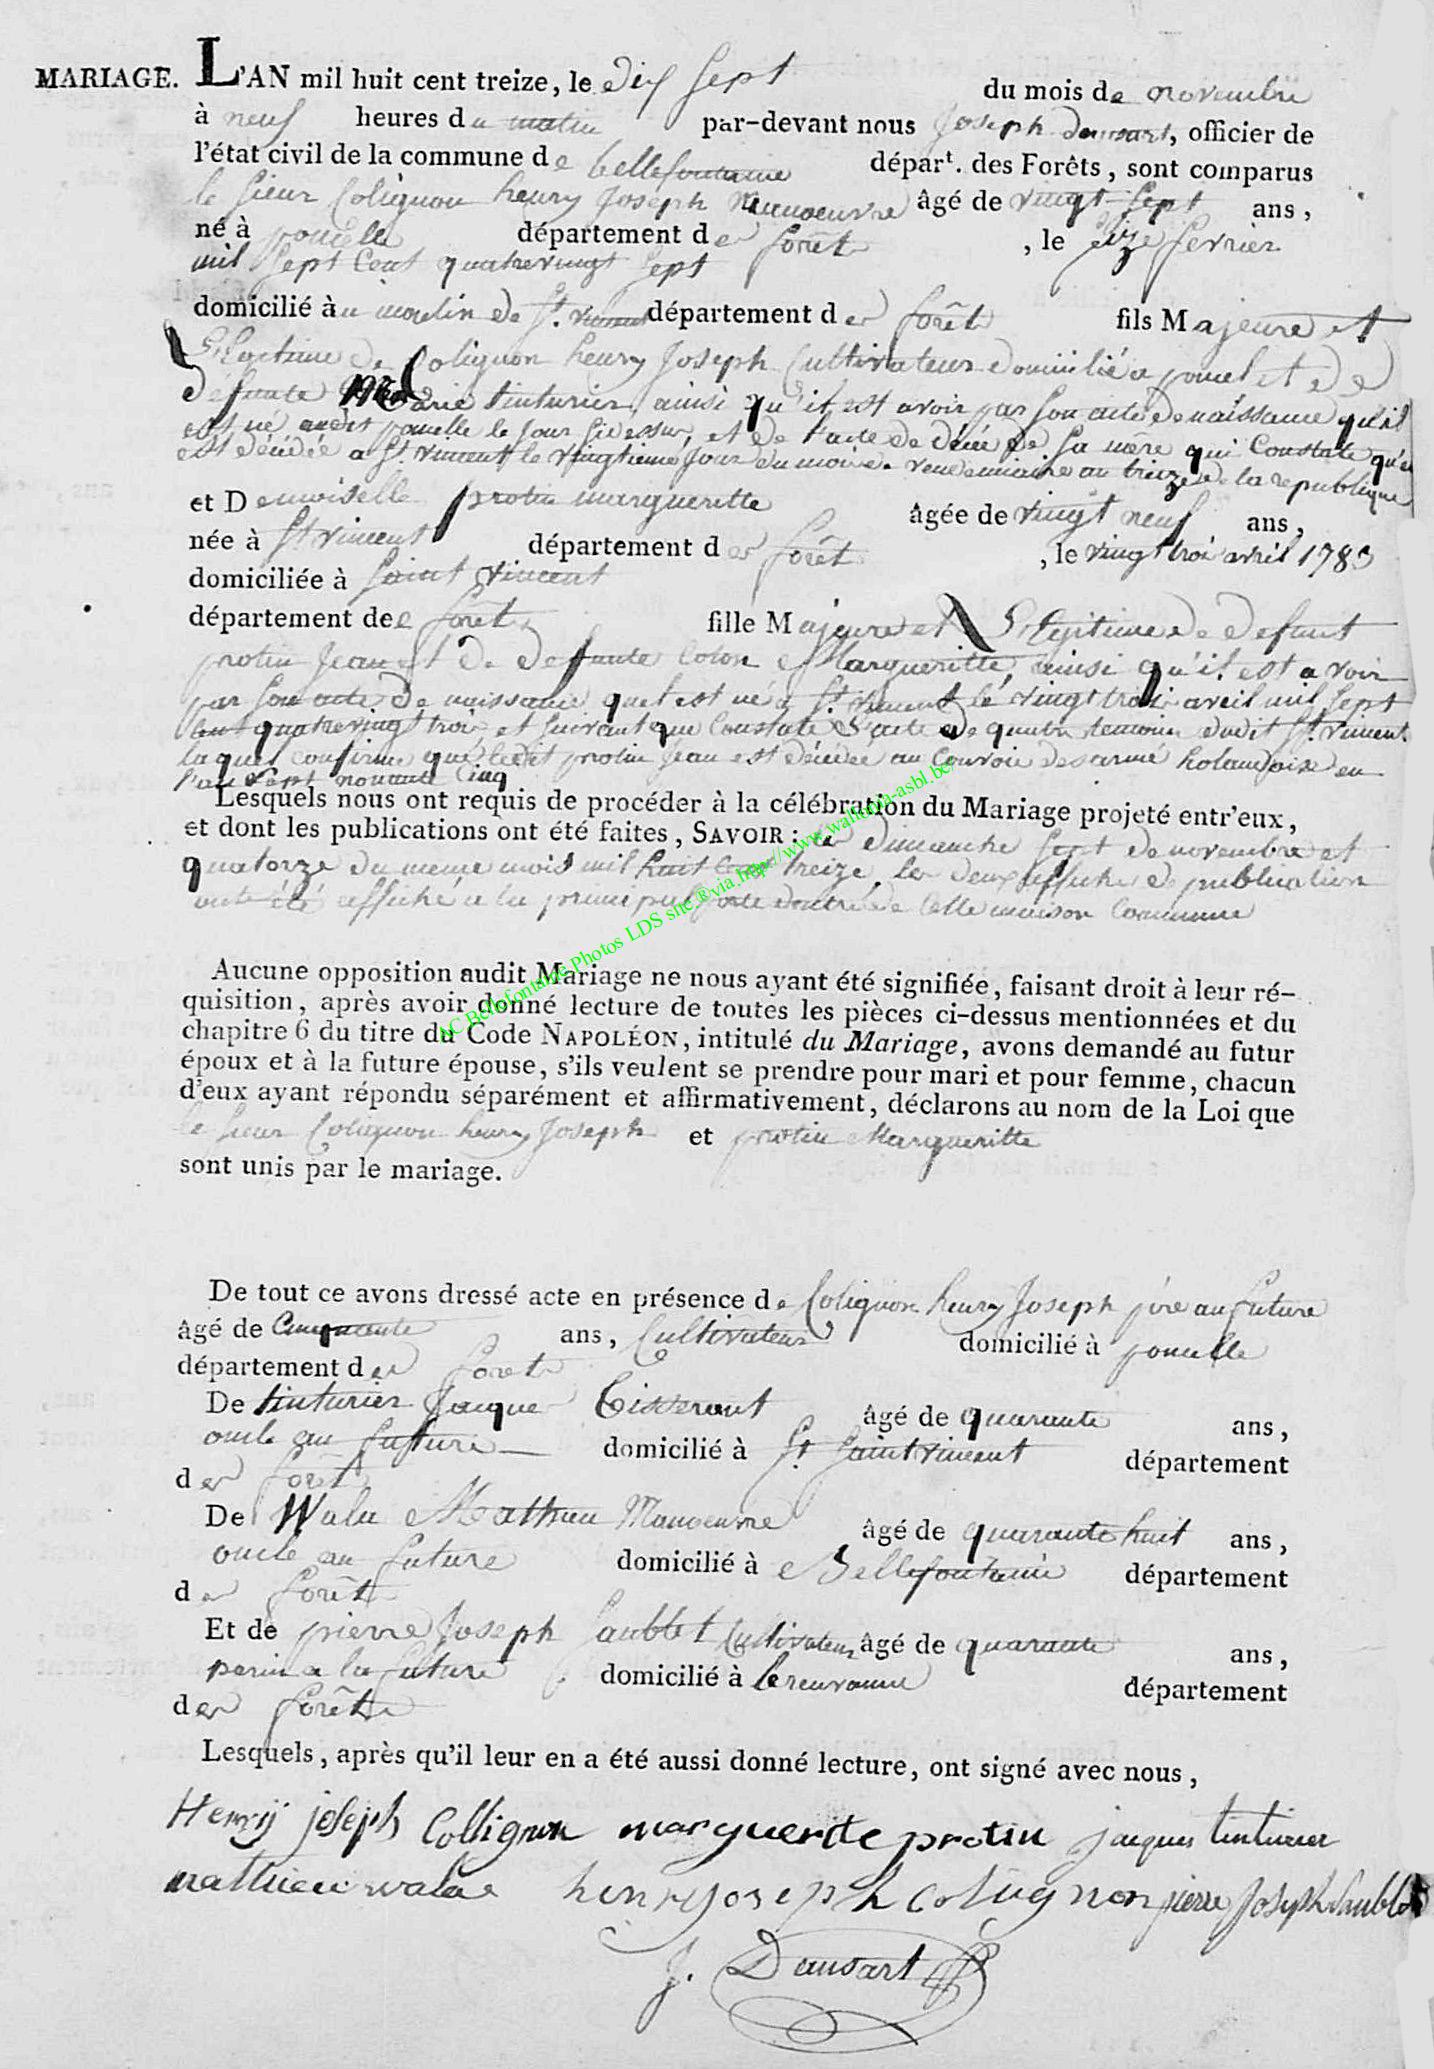 MARIAGE. L'AN mil huit cent treize, le dix sept du mois de novembre
à neuf heures du matin par-devant nous Joseph Dansart, officier de
l'état civil de la commune de bellefontaine départ. des Forêts, sont comparus
le sieur Colignon henry Joseph Manoeuvre âgé de vingt sept ans,
né à poncelle département des forêt , le seize fevrier
mil sept cent quatrevingt sept
domicilié au moulin de St. vincent département des forêt fils Majeure et
Legitime de Colignon henry Joseph Cultivateur domicilié a poncel et de
defunte Marie tinturier, ainsi qu'il est avoir par son acte de naissance qu'il
est né audit poncelle le jour sidessus, et de l'acte de décée de sa mère qui Constate qu'
est décédée a St. vincent le vingtieme jour du mois de vendemiaire an treize de la republique
et Demoiselle protin margueritte âgée de vingt neuf ans,
née à St vincent département des forêt , le vingt troi avril 1783
domiciliée à saint vincent
département des forêt fille Majeure et Legitime de defunt
protin Jean et de defunte Colon Margueritte, ainsi qu'il est a voir
par son acte de naissance quel est né a St. vincent le vingt trois avril mil sept
cent quatrevingt trois et suivant que Constate l'acte de quatre temoins dudit St. vincent
laquel confirme que ledit protin Jean est décédée au Convoie des armé holandaise en
l'an sept nonante Cinq
Lesquels nous ont requis de procéder à la célébration du Mariage projeté entr'eux,
et dont les publications ont été faites, SAVOIR : les dimanche sept de novembre et
quatorze du meme mois mil huit cent treize, les deux affiches de publication
ont été affiché a la principal porte d'entré de Celle maison Commune
AC Bellefontaine Photos LDS snc ® via http://www.wallonia-asbl.be/
Aucune opposition audit Mariage ne nous ayant été signifiée, faisant droit à leur ré-
quisition, après avoir donné lecture de toutes les pièces ci-dessus mentionnées et du
chapitre 6 du titre du Code NAPOLÉON, intitulé du Mariage, avons demandé au futur
époux et à la future épouse, s'ils veulent se prendre pour mari et pour femme, chacun
d'eux ayant répondu séparément et affirmativement, déclarons au nom de la Loi que
le sieur Colignon henry Joseph et protin Margueritte
sont unis par le mariage.
De tout ce avons dressé acte en présence de Colignon henry Joseph père au future
âgé de Cinquante ans, Cultivateur domicilié à poncelle
département des foret
De tinturier Jacque Tisserant âgé de quarante ans,
oncle au future domicilié à St Saint vincent département
des forêt
De Wala Mathieu Manoeuvre âgé de quarante huit ans,
oncle au future domicilié à Bellefontaine département
des forêt
Et de pierre Joseph saublet Cultivateur âgé de quarante ans,
parin a la future domicilié à breuvanne département
des forêt
Lesquels, après qu'il leur en a été aussi donné lecture, ont signé avec nous,
Henrÿ joseph Collignon marguerite protin jacques tinturier
mathieu walae henry joseph colignon pierre Joseph Saublet
J. Dansart